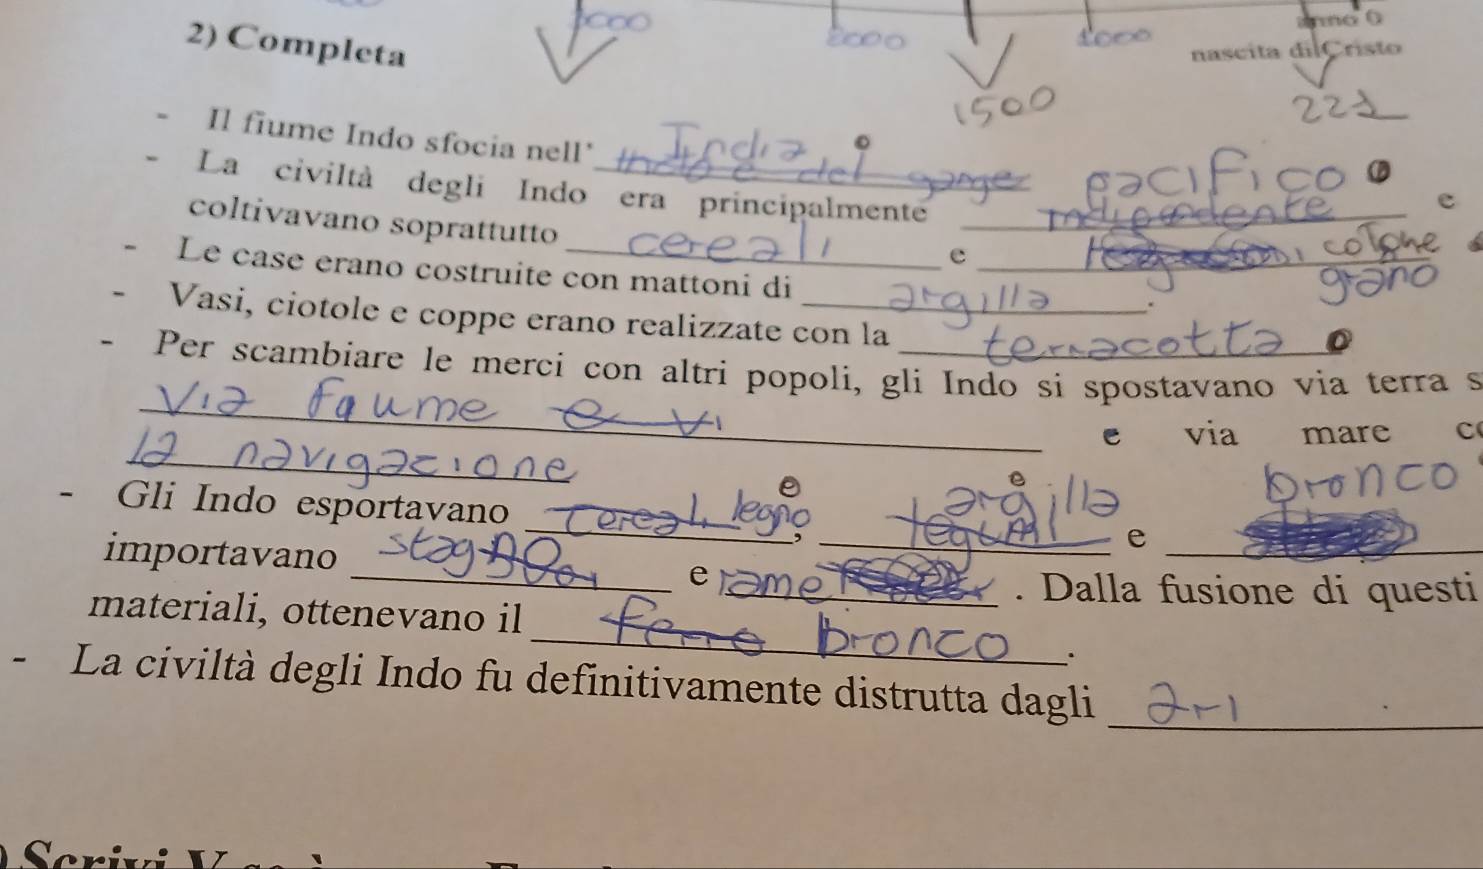 2) Completa
5000
2000
1000
anno 0
nascita di Cristo
1500
221
- Il fiume Indo sfocia nell' India
- La civiltà degli Indo era principalmente pacifico e
indipendente
coltivavano soprattutto cereali e cotone
grano
- Le case erano costruite con mattoni di argilla.
- Vasi, ciotole e coppe erano realizzate con la terracotta
- Per scambiare le merci con altri popoli, gli Indo si spostavano via terra s
via faume e vi e via mare c
la navigazione
- Gli Indo esportavano cereali legno, argilla e bronco
importavano stagno e rame. Dalla fusione di questi
materiali, ottenevano il ferro bronco.
- La civiltà degli Indo fu definitivamente distrutta dagli ari
Scrivi V